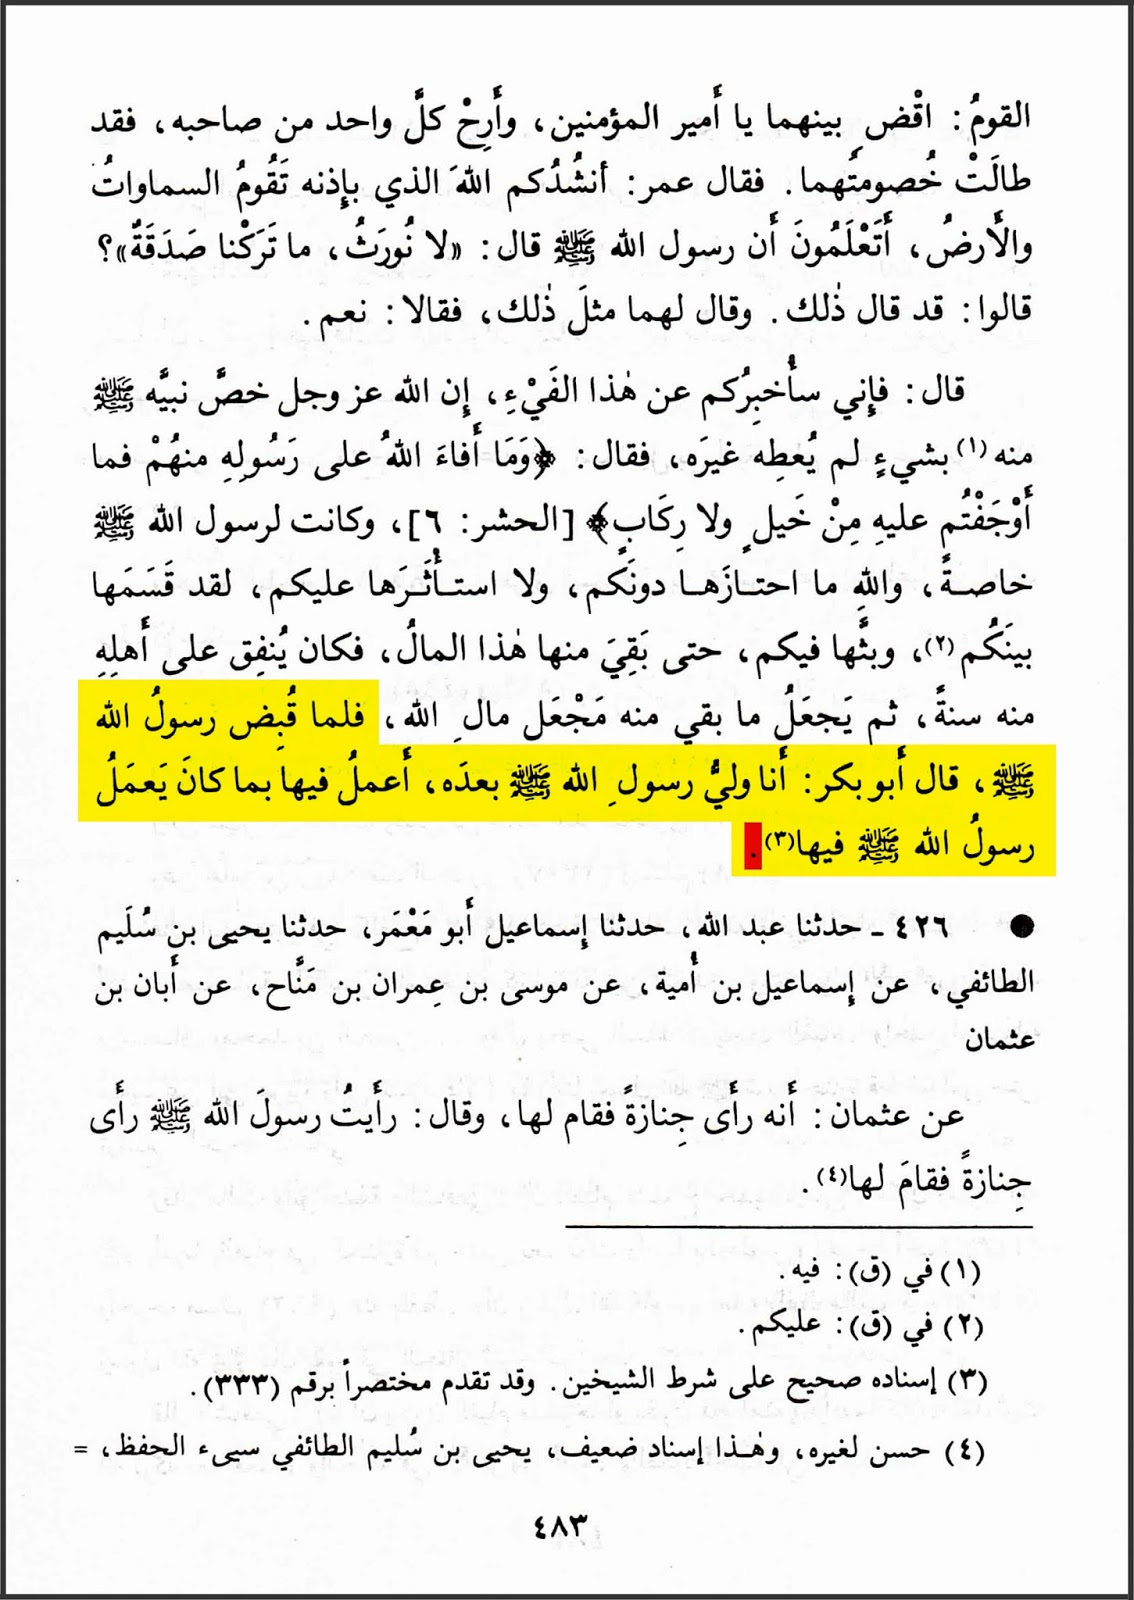 القومُ: اقْضِ بينهما يا أَمير المؤمنين، وأَرِحْ كلَّ واحد من صاحبه، فقد
طالَتْ خُصومتُهما. فقال عمر: أنشُدُكم اللهَ الذي بإِذنه تَقُومُ السماواتُ
والأَرضُ، أَتَعْلَمُونَ أَن رسول الله ﷺ قال: «لا نُورَثُ، ما تَرَكْنا صَدَقَةٌ»؟
قالوا: قد قال ذٰلك. وقال لهما مثلَ ذٰلك، فقالا: نعم.
قال: فإِني سأُخبِرُكم عن هٰذا الفَيْءِ، إِن الله عز وجل خصَّ نبيَّه ﷺ
منه(١) بشيءٍ لم يُعطِه غيرَه، فقال: ﴿وَمَا أَفاءَ اللهُ على رَسُولِهِ منهُمْ فما
أَوْجَفْتُم عليهِ مِنْ خَيلٍ ولا رِكَابٍ﴾ [الحشر: ٦]، وكانت لرسول الله ﷺ
خاصةً، واللهِ ما احتازَها دونَكم، ولا استأْثَرَها عليكم، لقد قَسَمَها
بينَكُم(٢)، وبثَّها فيكم، حتى بَقِيَ منها هٰذا المالُ، فكان يُنفِق على أَهلِهِ
منه سنةً، ثم يَجعَلُ ما بقي منه مَجْعَل مالِ الله، فلما قُبِض رسولُ الله
ﷺ، قال أَبو بكر: أَنا وليُّ رسولِ الله ﷺ بعدَه، أَعملُ فيها بما كانَ يَعمَلُ
رسولُ الله ﷺ فيها(٣).
● ٤٢٦ ـ حدثنا عبد الله، حدثنا إِسماعيل أَبو مَعْمَر، حدثنا يحيى بن سُلَيم
الطائفي، عن إِسماعيل بن أُمية، عن موسى بن عِمران بن مَنَّاح، عن أَبان بن
عثمان
عن عثمان: أَنه رأَى جِنازةً فقام لها، وقال: رأَيتُ رسولَ الله ﷺ رأَى
جِنازةً فقامَ لها(٤).
(١) في (ق): فيه.
(٢) في (ق): عليكم.
(٣) إسناده صحيح على شرط الشيخين. وقد تقدم مختصراً برقم (٣٣٣).
(٤) حسن لغيره، وهٰذا إسناد ضعيف، يحيى بن سُليم الطائفي سيىء الحفظ، =
٤٨٣